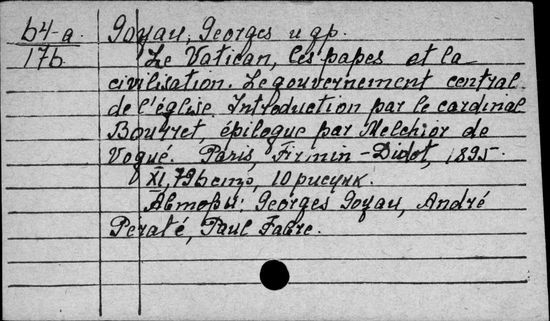 64-a. Goyau, Georges и др.
176 Le Vatican, les papes et la
civilisation. Le gouvernement central
de l'église. Introduction par le cardinal
Bourret, épilogue par Melchior de
Vogué. Paris, Firmin-Didot, 1895.
XI, 796 стр, 10 рисунк.
Авторы: Georges Goyau, André
Peraté, Paul Fabre.